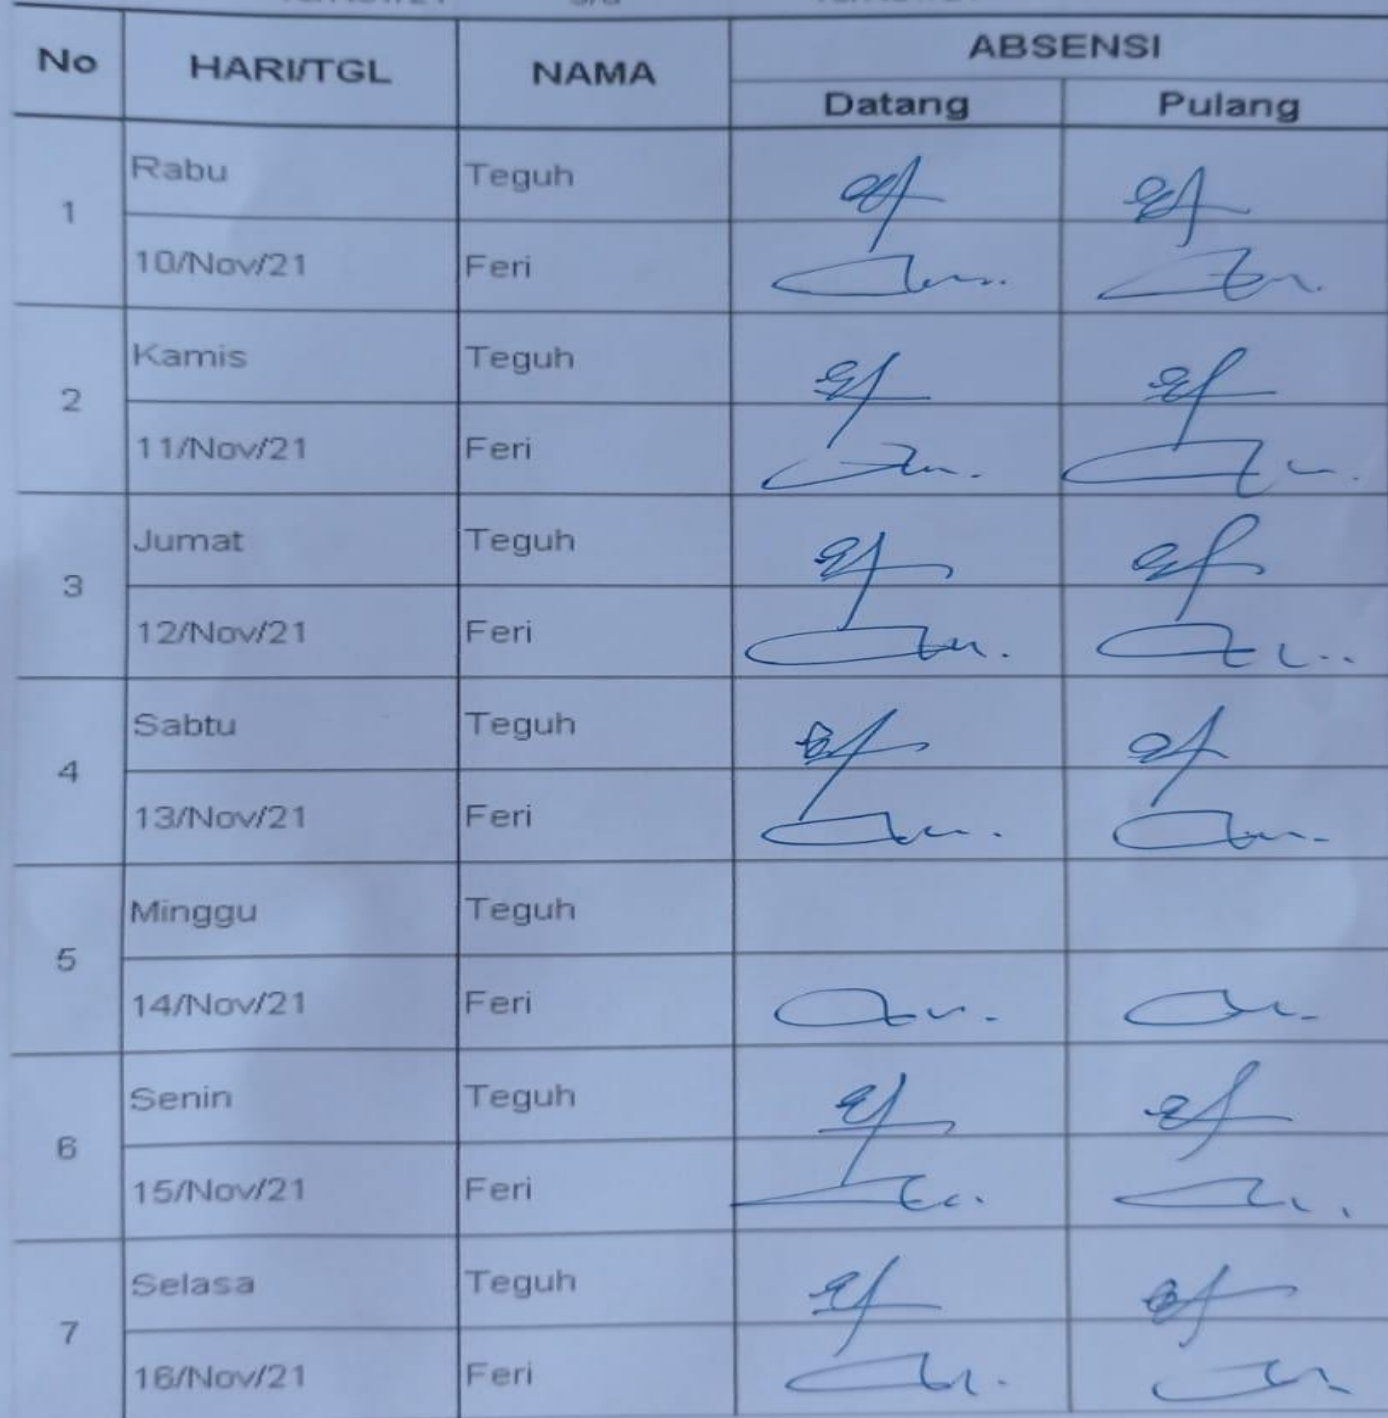 No HARI/TGL NAMA ABSENSI
Datang Pulang
1 Rabu Teguh
10/Nov/21 Feri
2 Kamis Teguh
11/Nov/21 Feri
3 Jumat Teguh
12/Nov/21 Feri
4 Sabtu Teguh
13/Nov/21 Feri
5 Minggu Teguh
14/Nov/21 Feri
6 Senin Teguh
15/Nov/21 Feri
7 Selasa Teguh
16/Nov/21 Feri